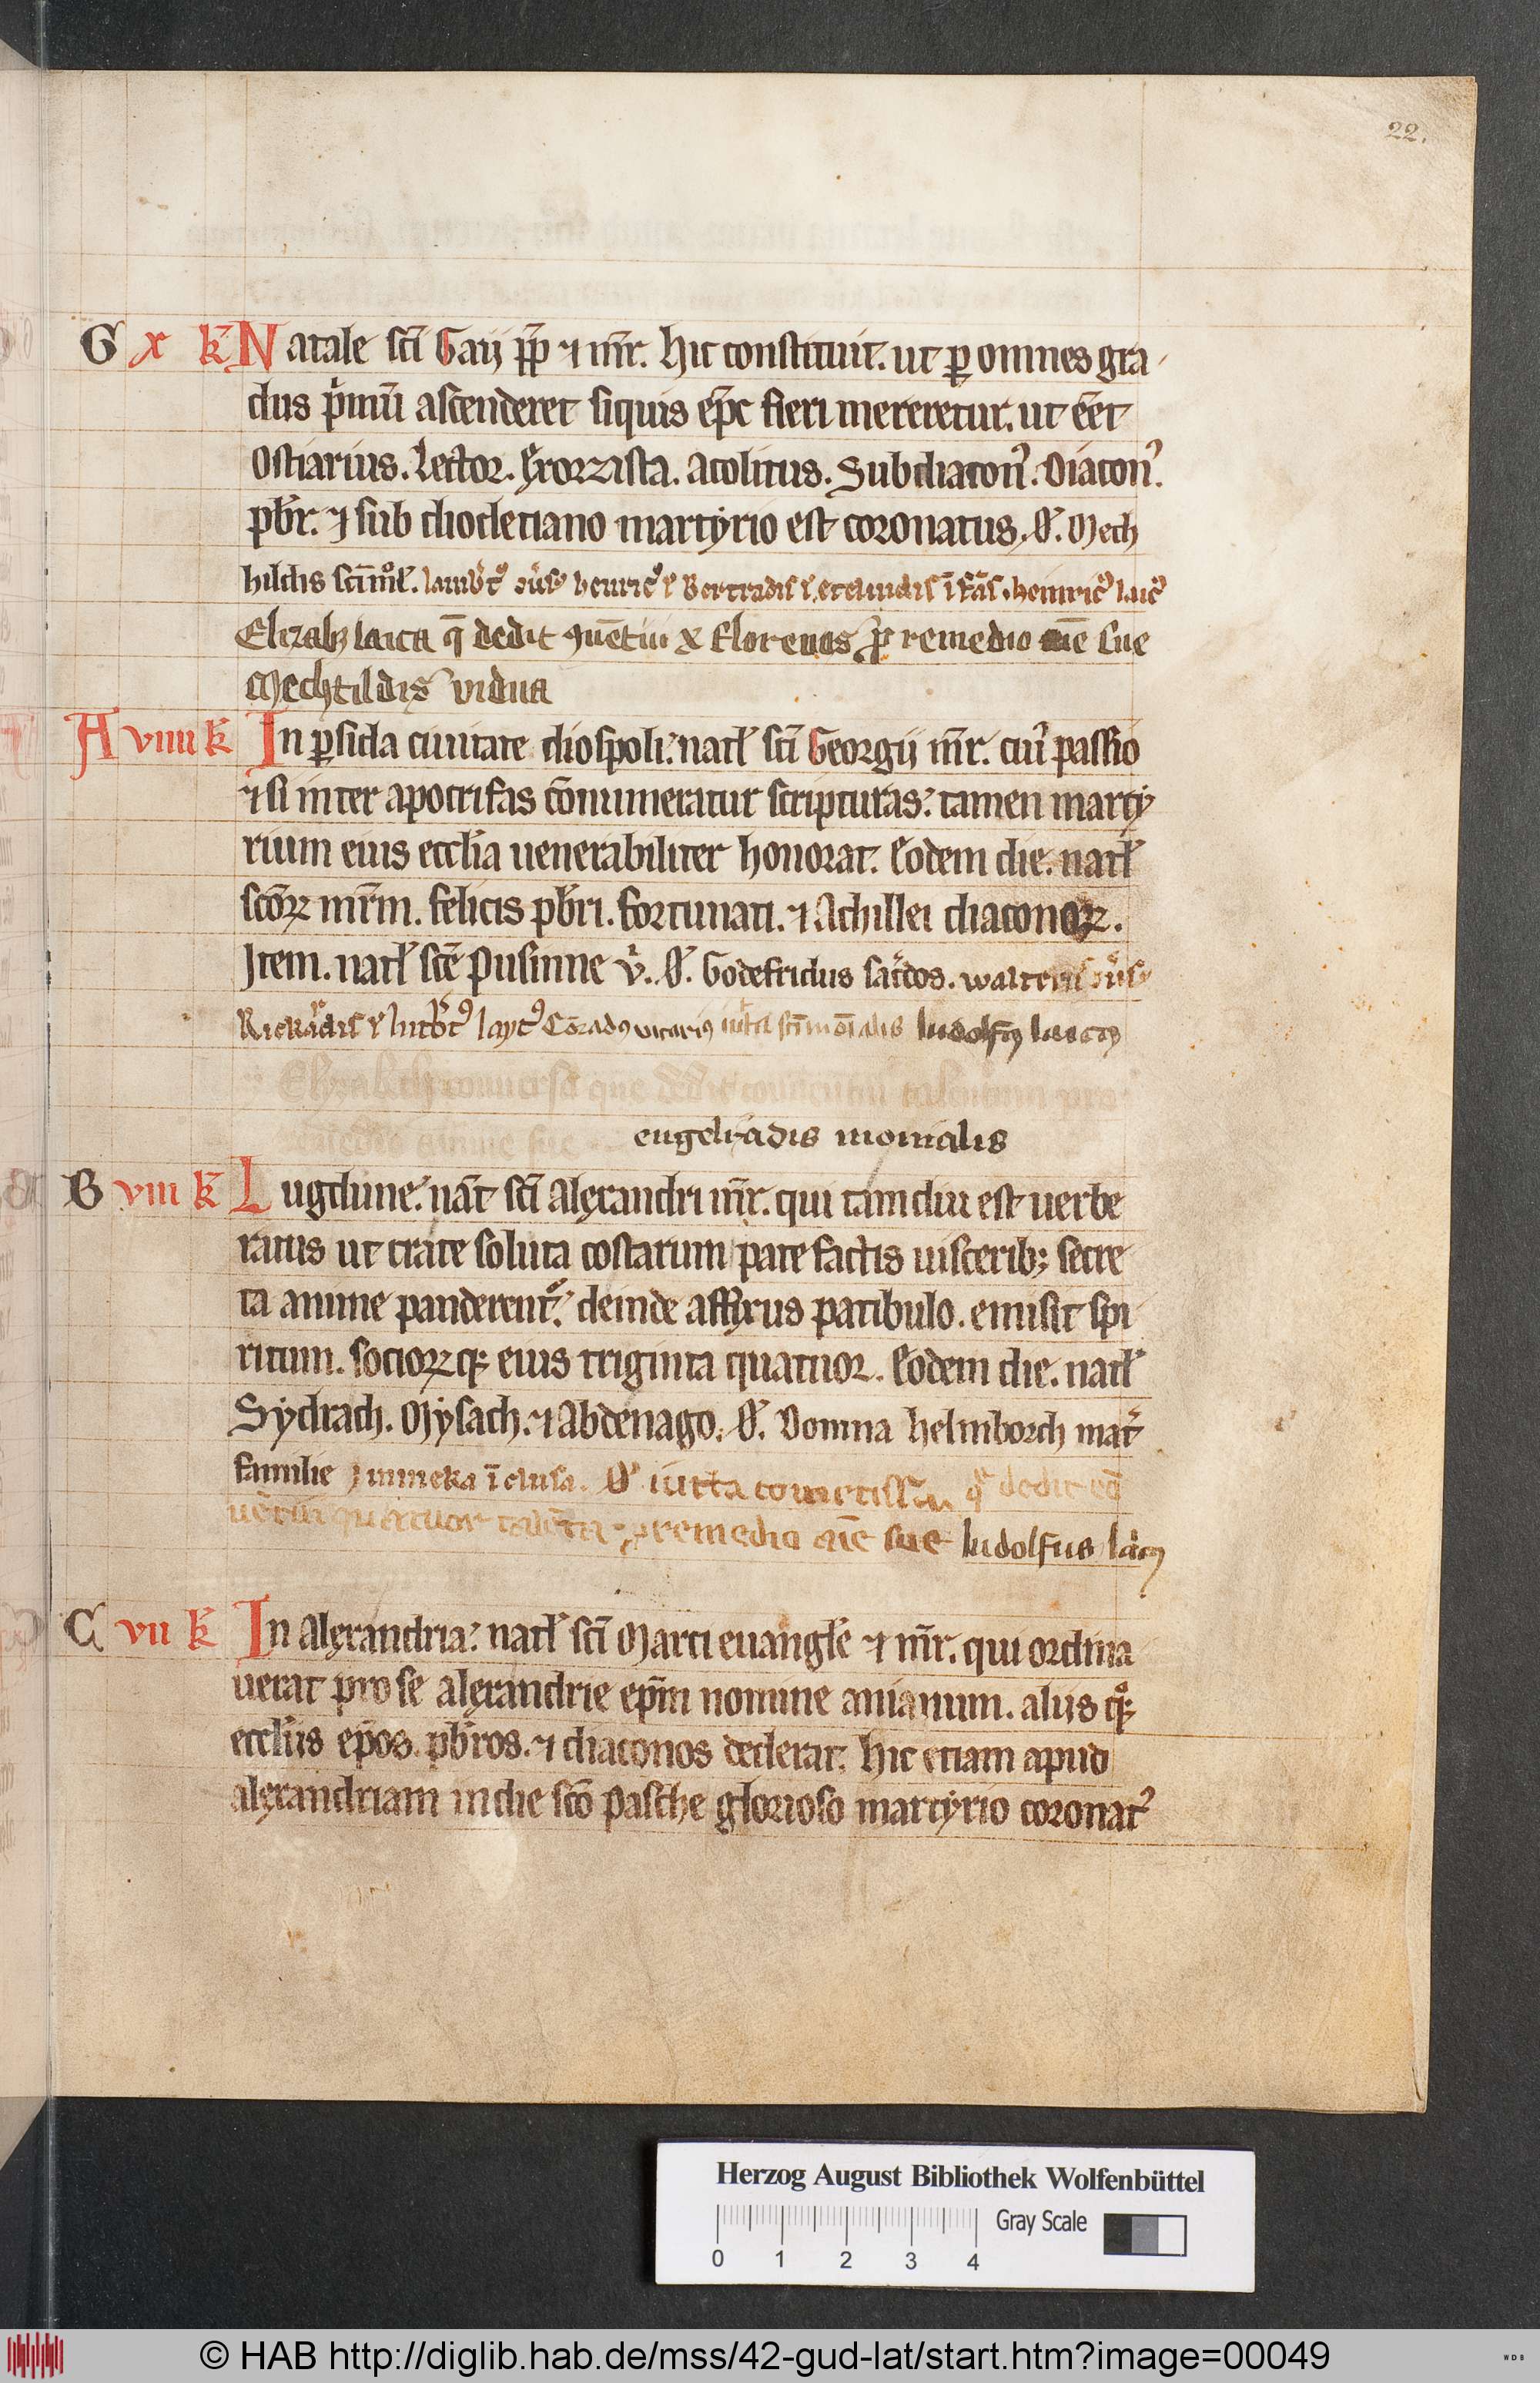 22.
G x k̄ Natale sc̄i Gaij pp̄ ⁊ mr̄. Hic constituit. ut ꝑ omnes gra
dus p̓mū ascenderet siquis ep̄c fieri mereretur. ut eēt
Ostiarius. Lector. Exorzista. Acolitus. Subdiacon᾽. Diacon᾽.
pbr̄. ⁊ sub diocletiano martyrio est coronatus. O᾽. Mech
hildis Elizabꝫ laica q̄ dedit ꝯuētui x florenos p̄ remedio aīe sue
Mechtildis vidua
A viiii k̄ In ꝑsida ciuitate diospoli. natł sc̄i Georgij mr̄. cui᾽ passio
⁊si inter apocrifas cōnumeratur scripturas. tamen marty
rium eius eccłia uenerabiliter honorat. Eodem die. natł
sc̄oꝝ mr̄m. felicis pbr̄i. fortunati. ⁊ Achillei diaconoꝝ.
Item. natł sc̄e Pusinne v̓. O᾽. Godefridus sac̓dos.
Cōradꝯ vicariꝯ ludolfꝯ laicꝯ
Elyzabeth conuersa que dedit conuentui talentum pro
engelradis monialis
B viii k̄ Lugdune. nat̄ sc̄i Alexandri mr̄. qui tam diu est uerbe
ratus ut crate soluta costarum patefactis uisceribꝫ secre
ta anime panderent᾽. deinde affixus patibulo. emisit spi
ritum. socioꝝqꝫ eius triginta quatuor. Eodem die. natł
Sydrach. Mysach. ⁊ Abdenago. O᾽. Domna helmborch mat̓
familie īclusa. O᾽ iutta comitissa q̄ dedit
quatuor talēta ꝓ remedio aīe sue ludolfus laicꝯ
C vii k̄ In Alexandria. natł sc̄i Marci euangłe ⁊ mr̄. qui ordina
uerat pro se alexandrie ep̄m nomine anianum. alijs qꝫ
eccłijs ep̄os. pbr̄os. ⁊ diaconos dederat. Hic etiam apud
alexandriam in die sc̄o pasche glorioso martyrio coronat᾽
Herzog August Bibliothek Wolfenbüttel
Gray Scale
0 1 2 3 4
© HAB http://diglib.hab.de/mss/42-gud-lat/start.htm?image=00049
WDB